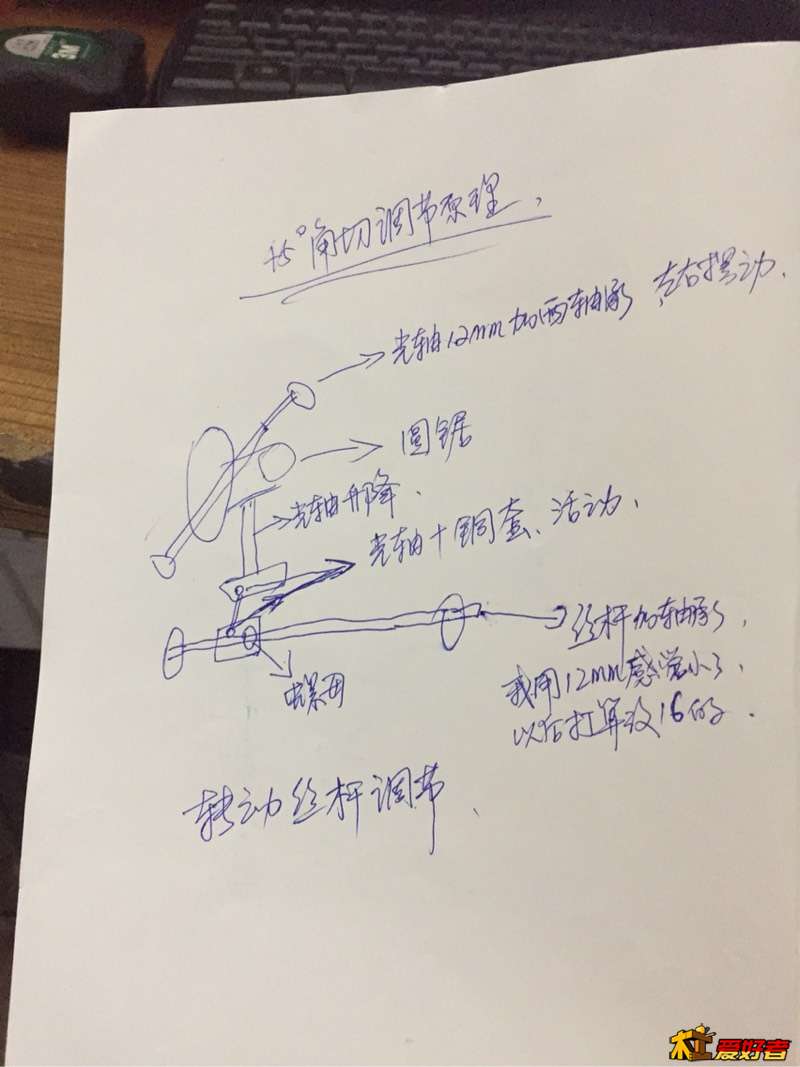 45°角切调节原理、
光轴12mm加两轴承 左右摆动、
圆锯
光轴升降、
光轴+铜套、活动、
丝杆加轴承、
我用12mm感觉小了、
以后打算改16的.
螺母
转动丝杆调节、
木工爱好者